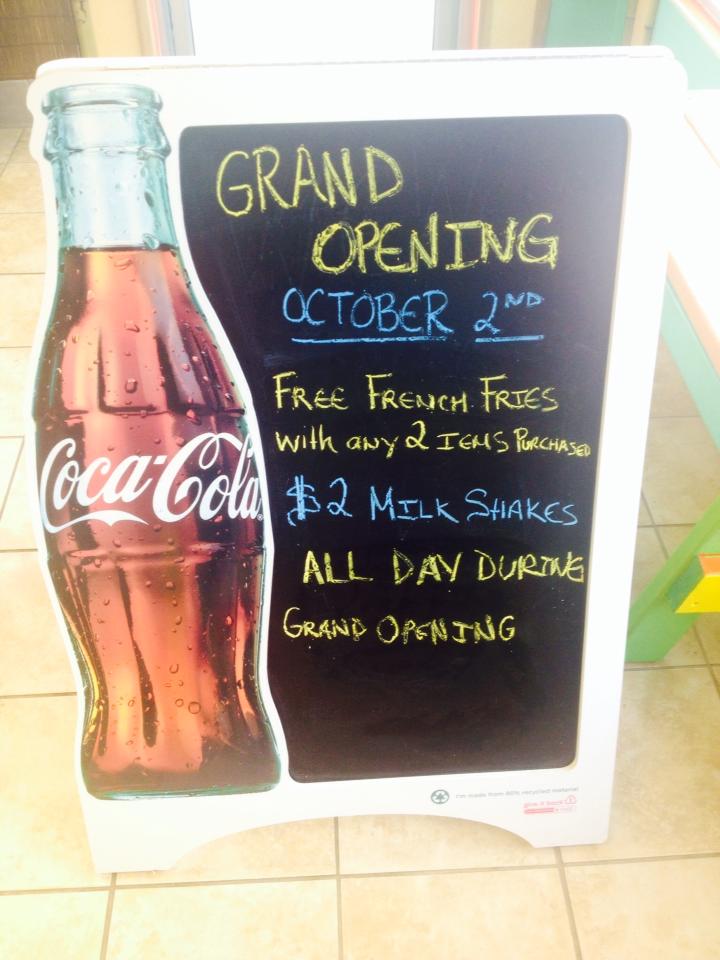 GRAND
OPENING
OCTOBER 2ND
FREE FRENCH FRIES
with any 2 IEMS PURCHASED
$2 MILK SHAKES
ALL DAY DURING
GRAND OPENING
Coca-Cola
I'm made from 80% recycled material
give it back